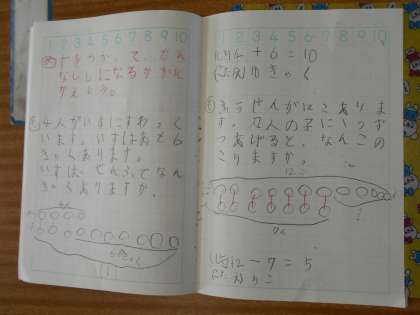 1 2 3 4 5 6 7 8 9 10
め ずをつかって、どん
なしきになるかかん
がえよう。
4人がいすにすわって
います。いすはあと6
きゃくあります。
いすは、ぜんぶでなん
きゃくありますか。
6きゃく
1 2 3 4 5 6 7 8 9 10
(しき)4+6=10
(こたえ)10きゃく
ふうせんが12こありま
す。7人の子に1つず
つあげると、なんこの
こりますか。
12こ
(しき)12-7=5
(こたえ)5こ